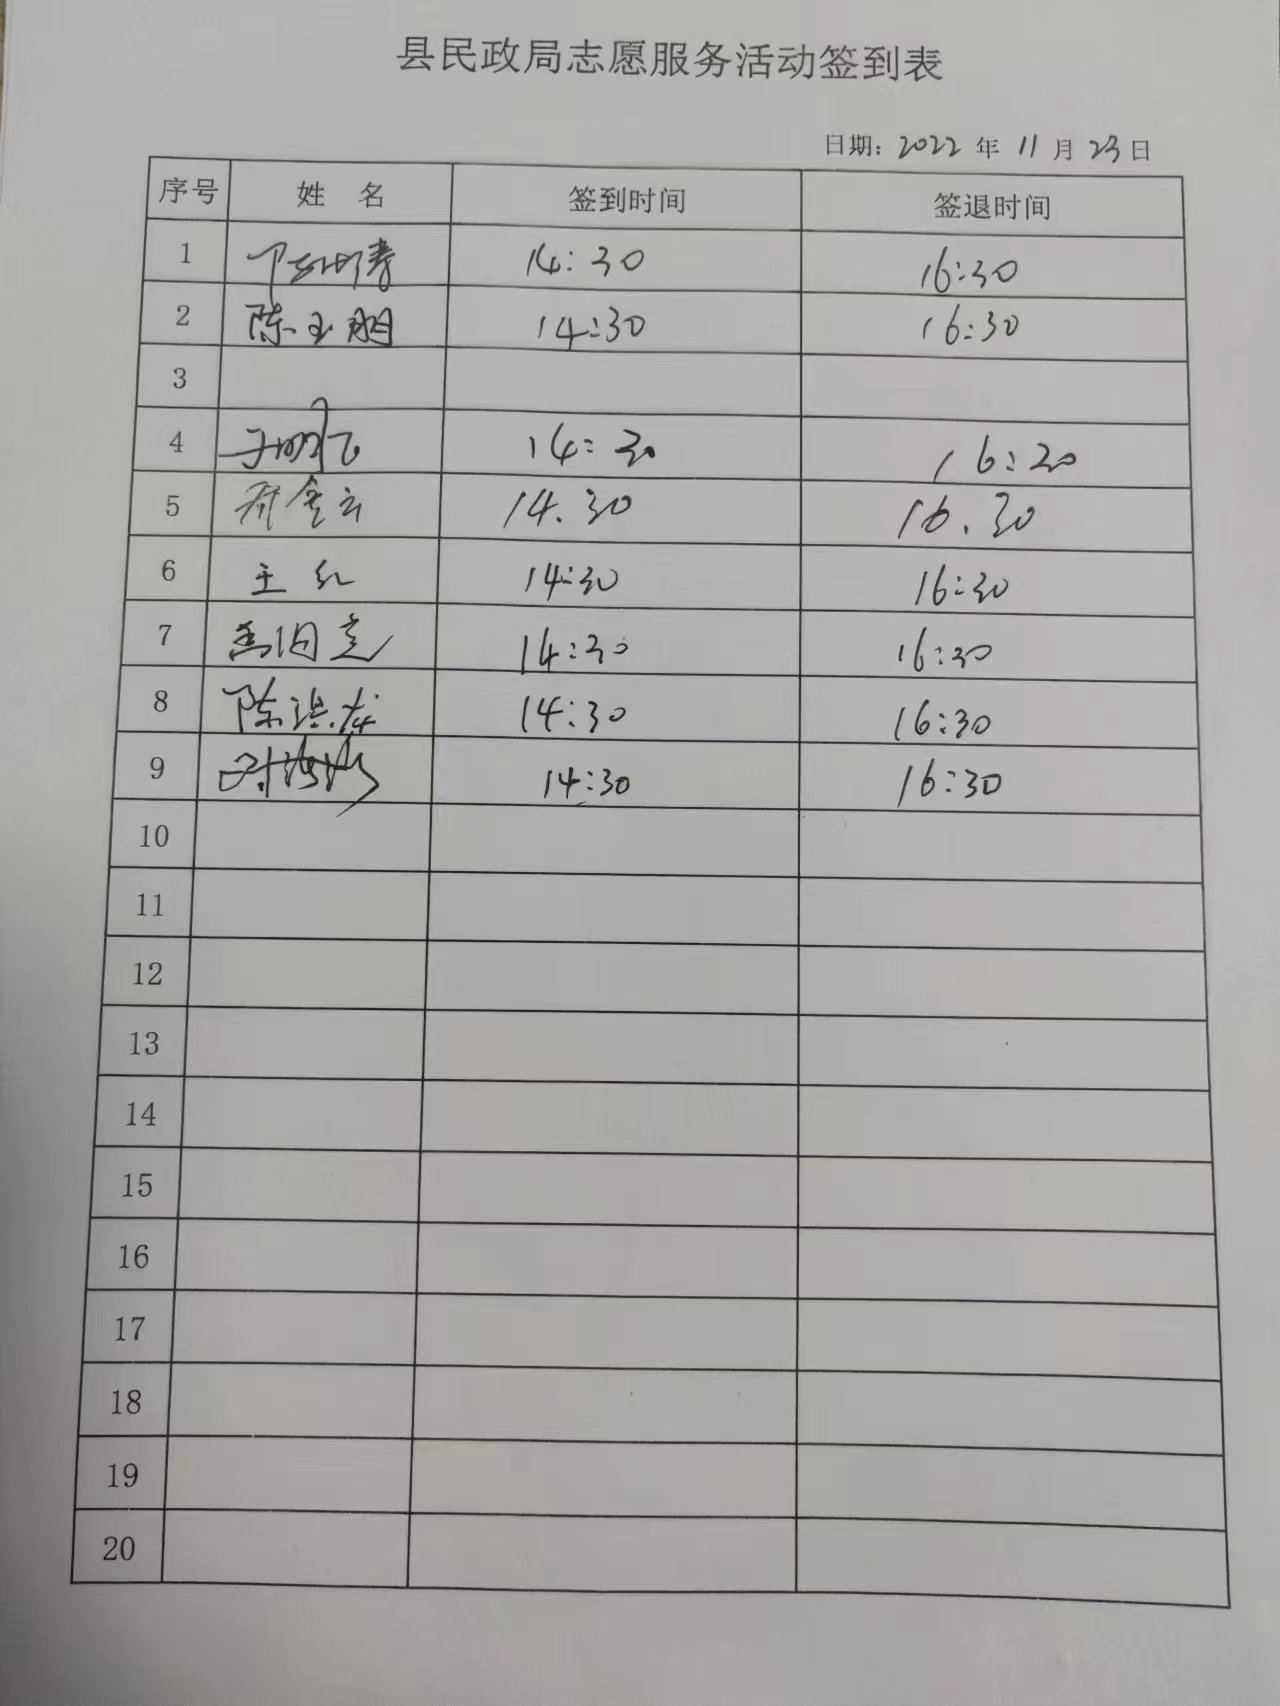 县民政局志愿服务活动签到表
日期: 2022 年 11 月 23 日
序号 姓 名 签到时间 签退时间
1 14:30 16:30
2 陈玉明 14:30 16:30
3
4 14:30 16:20
5 14.30 16.30
6 王红 14:30 16:30
7 14:30 16:30
8 陈洪龙 14:30 16:30
9 14:30 16:30
10
11
12
13
14
15
16
17
18
19
20